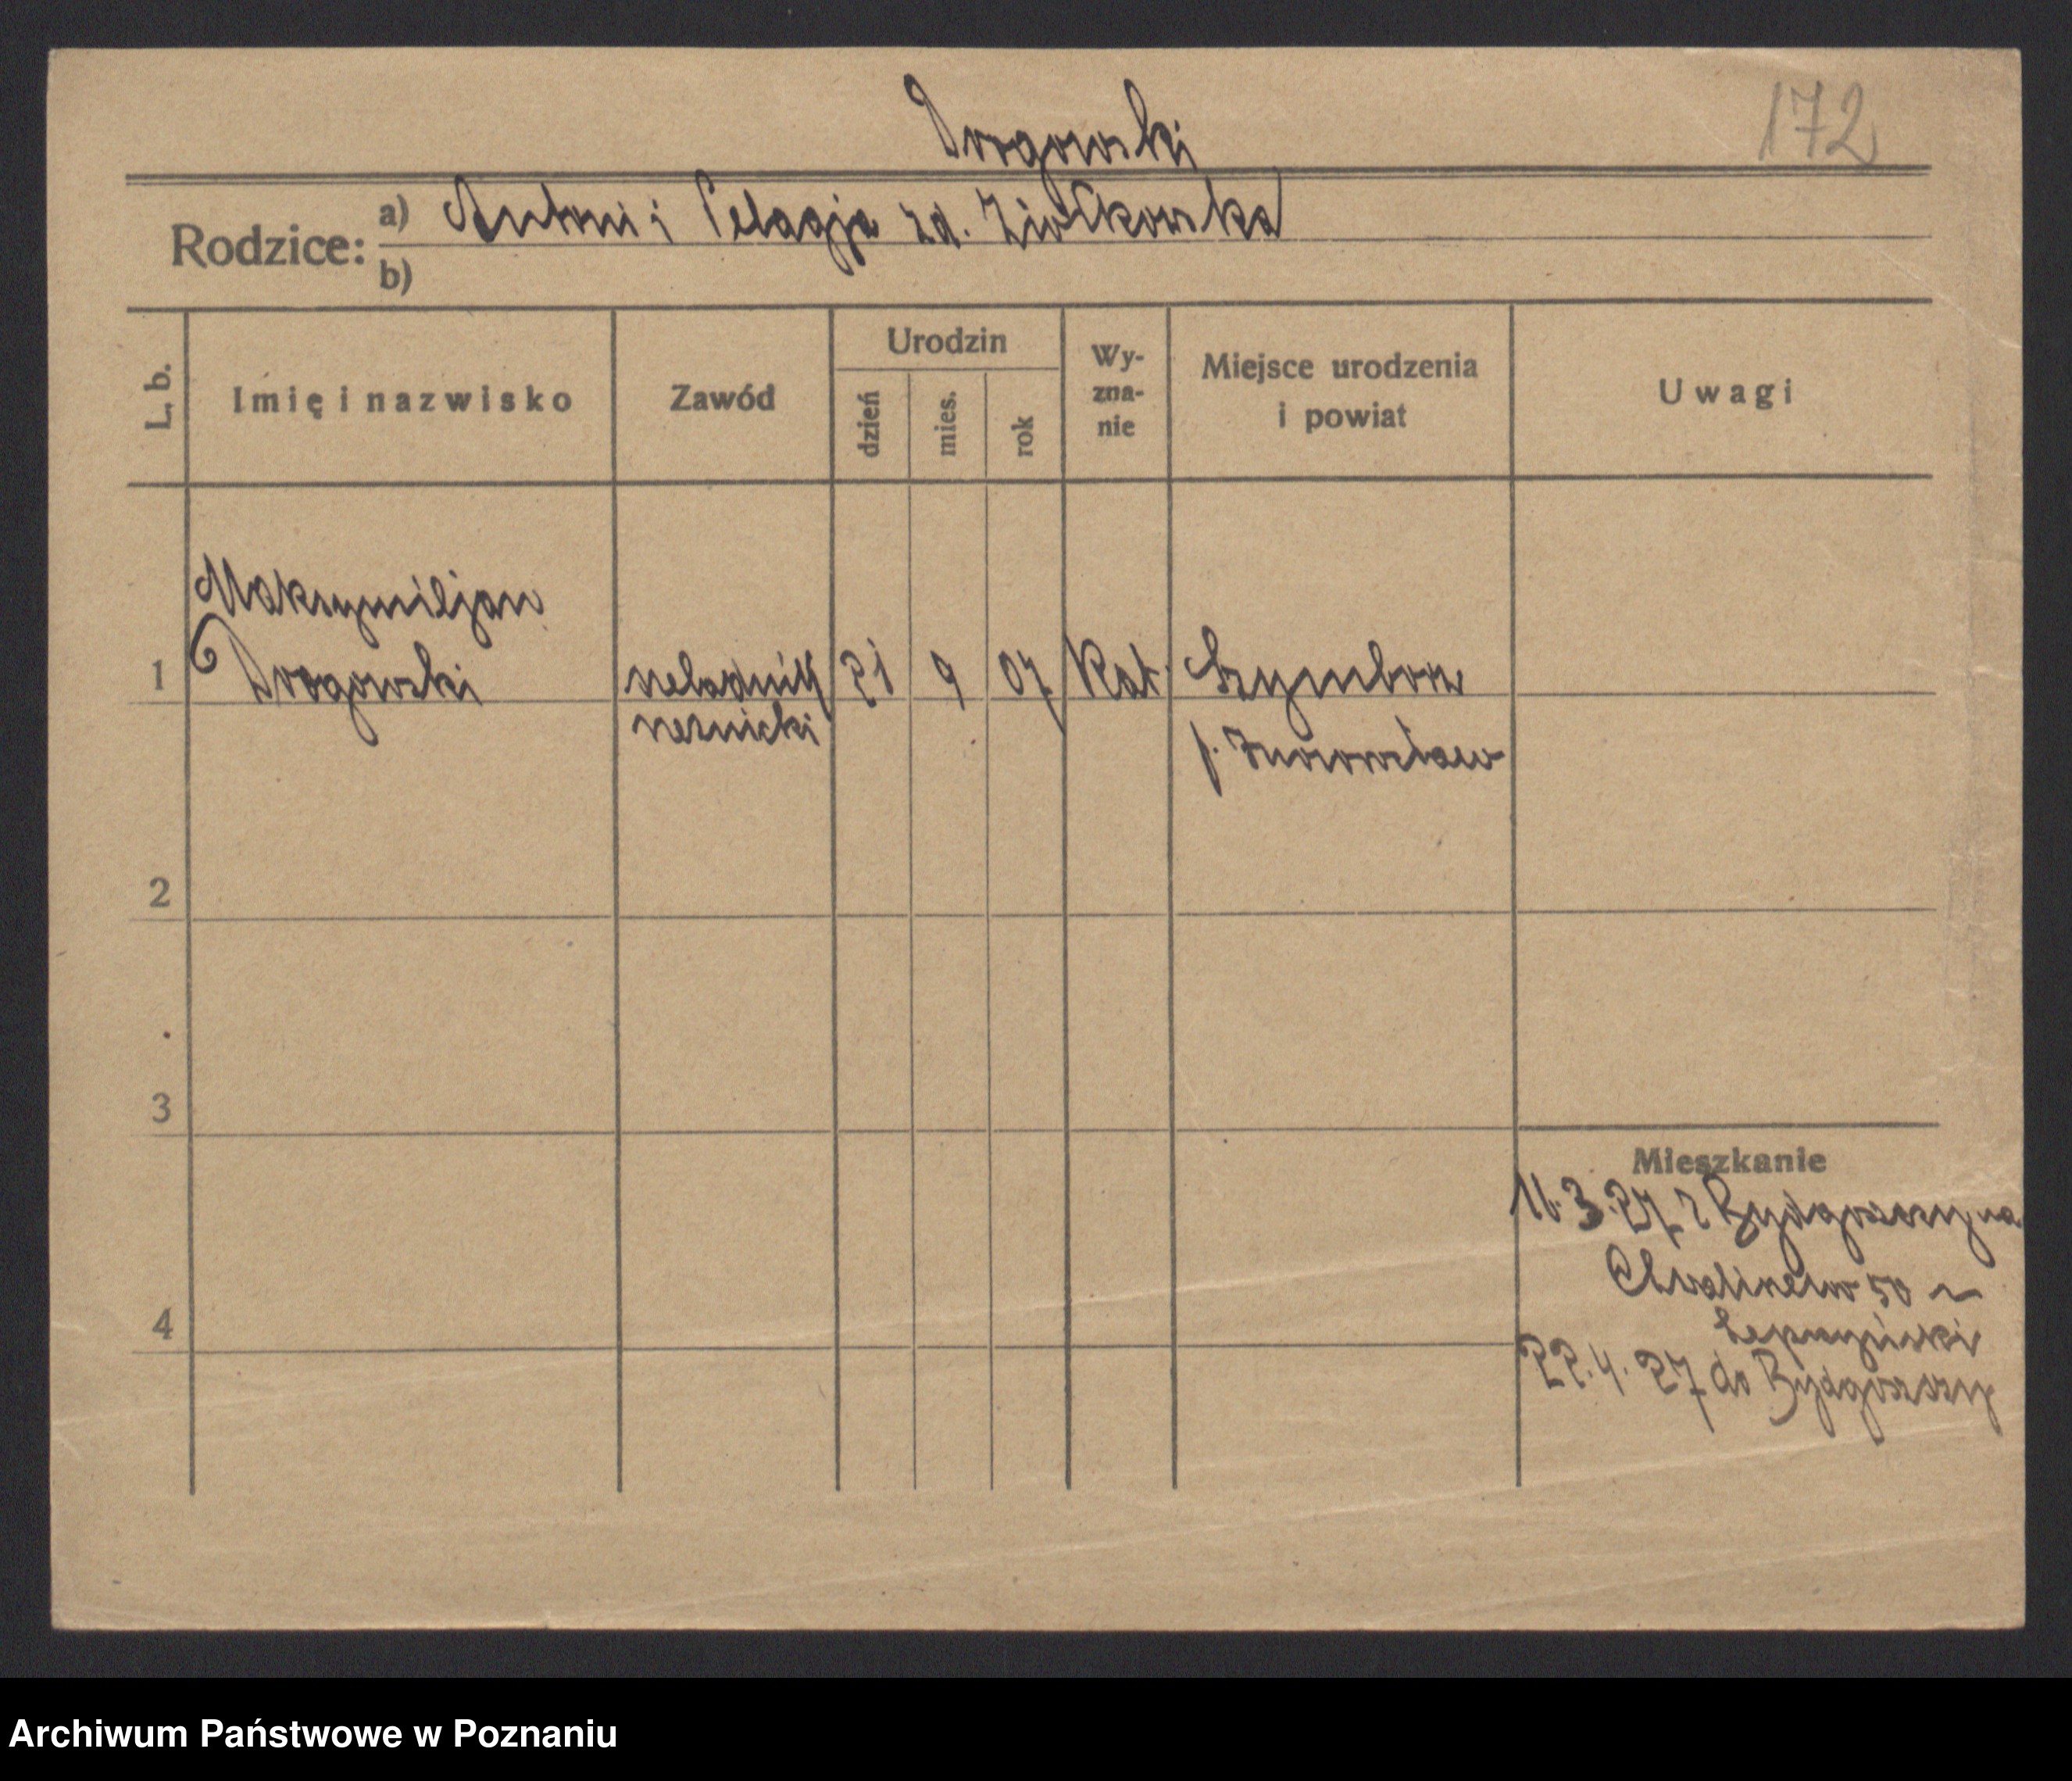 Drogowski
172
Rodzice: a) Antoni i Pelagja zd. Ziołkowska
b)
L. b. Imię i nazwisko Zawód Urodzin dzień mies. rok Wy-zna-nie Miejsce urodzenia i powiat Uwagi
Maksymiljan
1 Drogowski czeladnik 21 9 07 Kat. Szymborz
rzeźnicki p. Inowrocław
2
3
Mieszkanie
11.3.27 z Bydgoszczy na
50
4
22.4.27 do Bydgoszczy
Archiwum Państwowe w Poznaniu